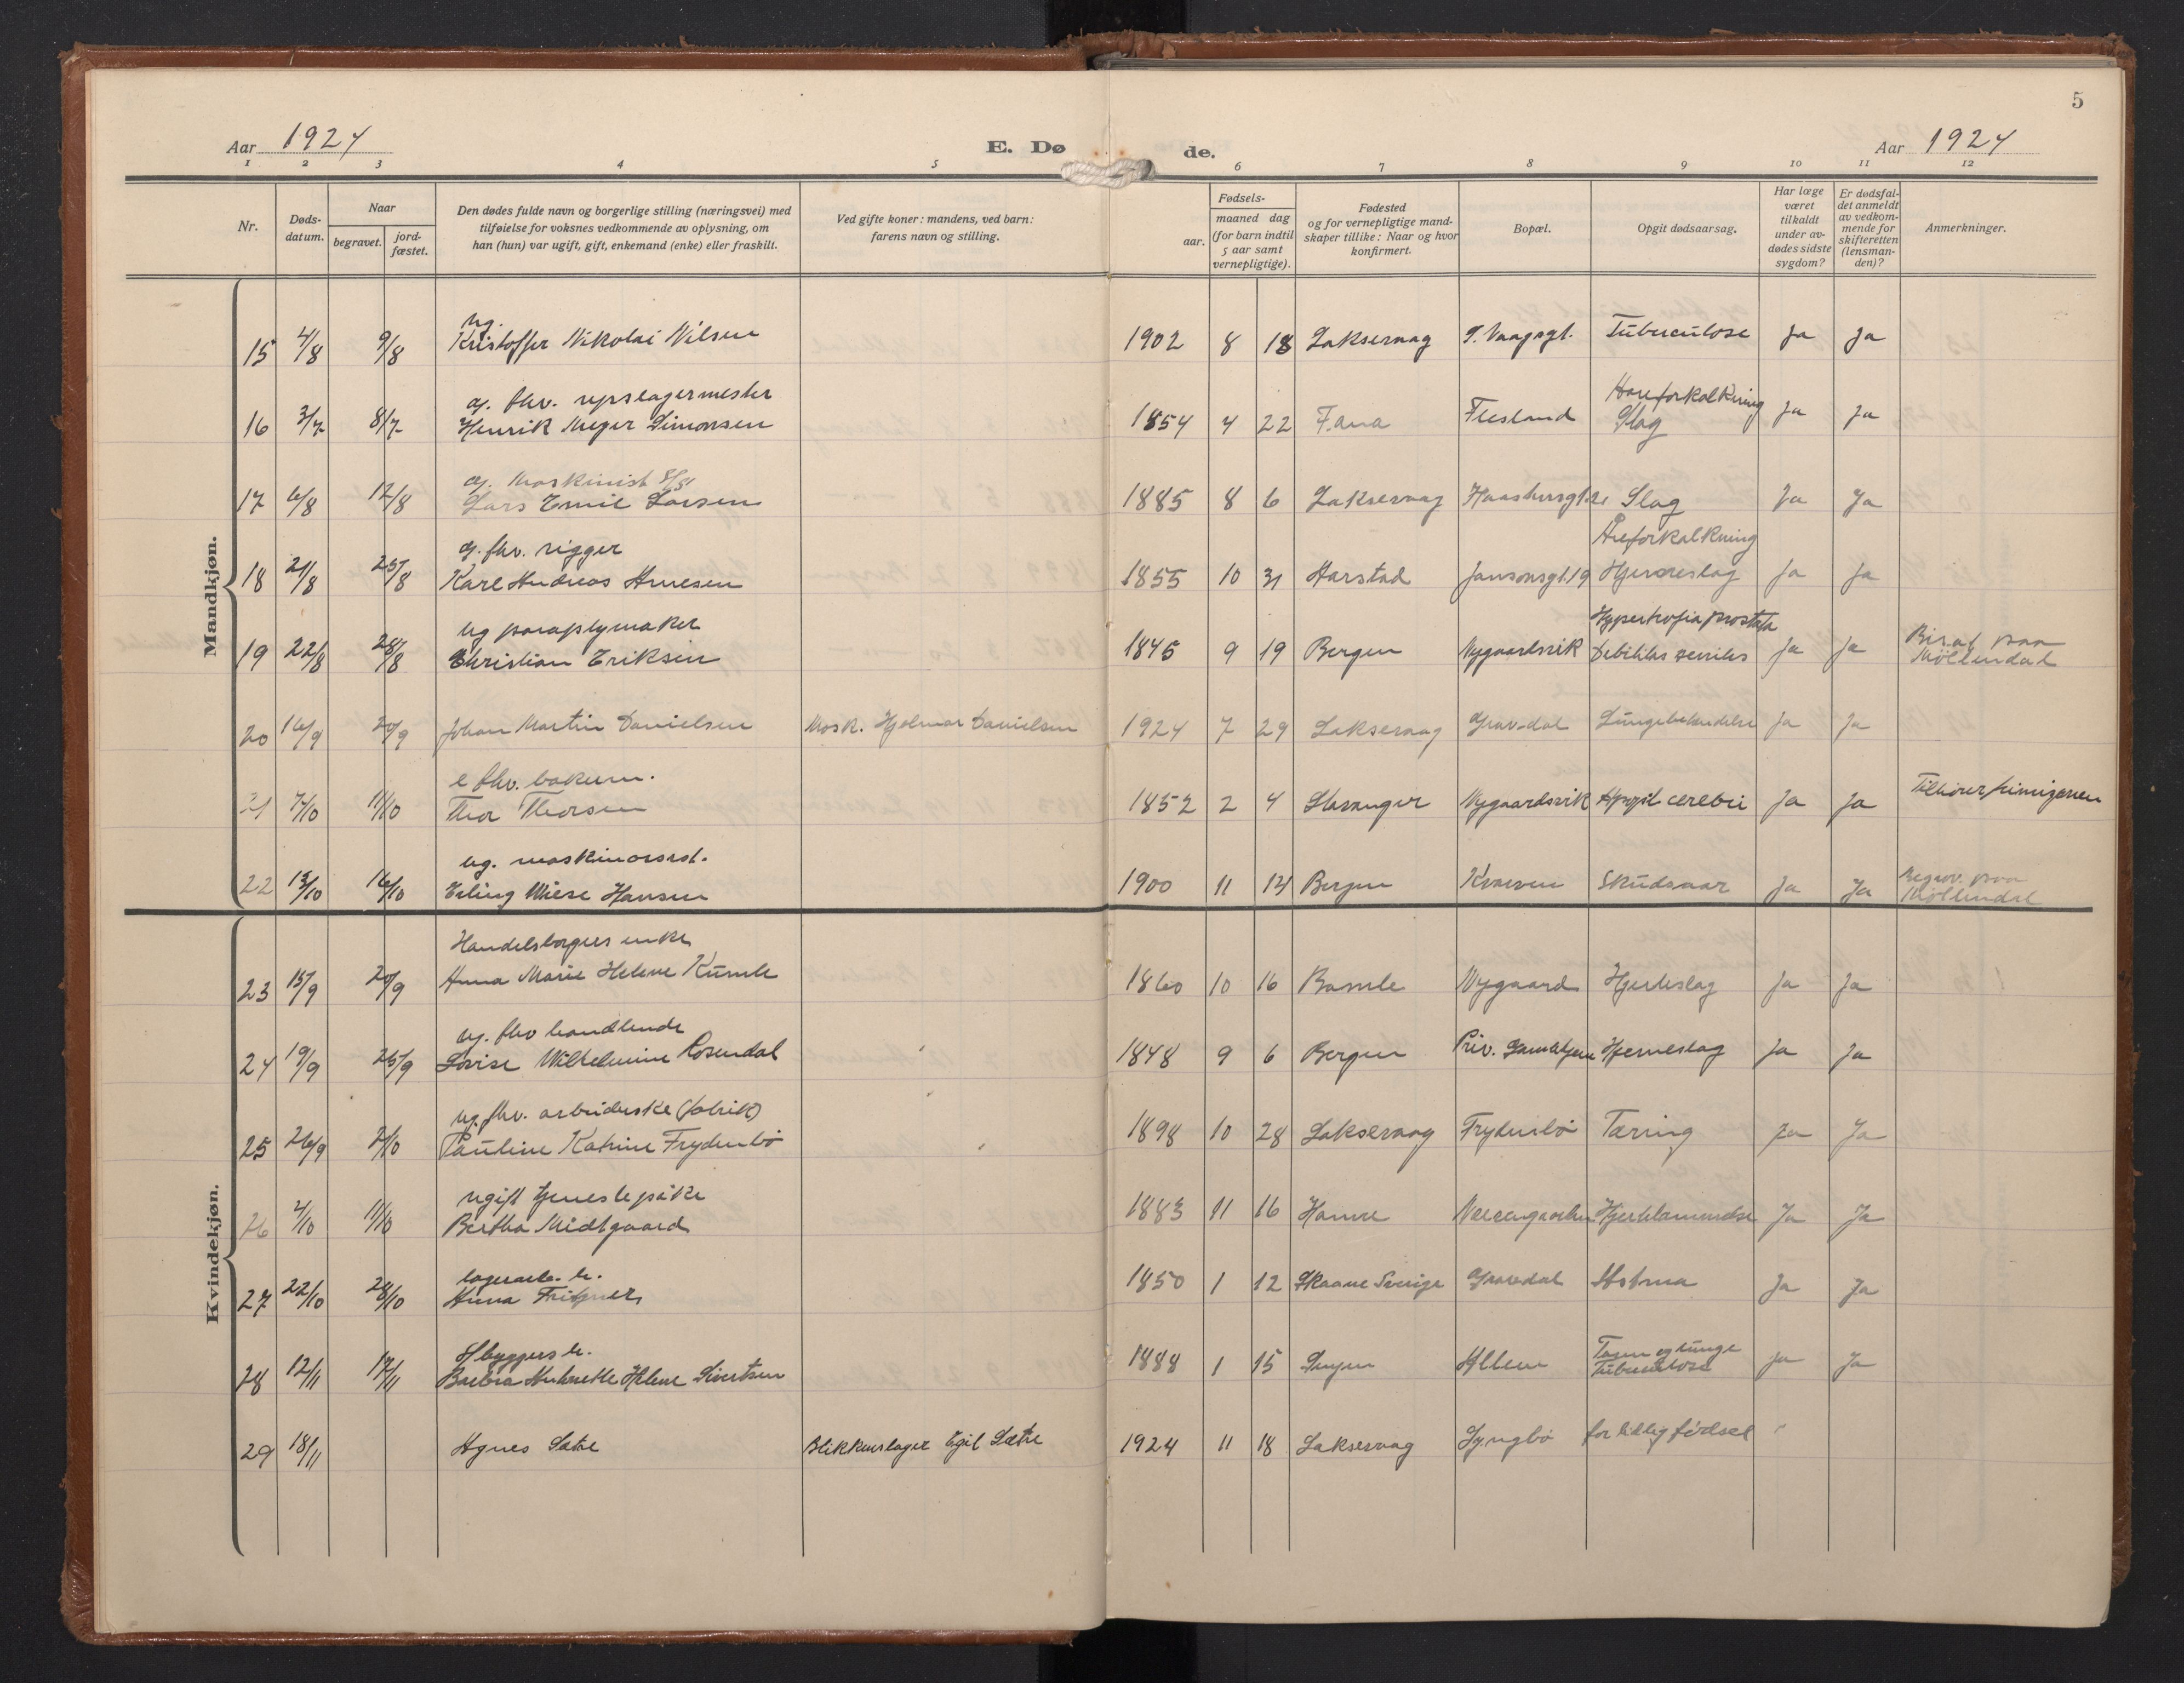 5
Aar 1924
E. Dø de.
Aar 1924
1 2 3 4 5 6 7 8 9 10 11 12
Nr.
Døds-
datum.
Naar
begravet.
jord-
fæstet.
Den dødes fulde navn og borgerlige stilling (næringsvei) med
tilføielse for voksnes vedkommende av oplysning, om
han (hun) var ugift, gift, enkemand (enke) eller fraskilt.
Ved gifte koner: mandens, ved barn:
farens navn og stilling.
Fødsels-
aar.
maaned dag
(for barn indtil
5 aar samt
vernepligtige).
Fødested
og for vernepligtige mand-
skaper tillike: Naar og hvor
konfirmert.
Bopæl.
Opgit dødsaarsag.
Har læge
været
tilkaldt
under av-
dødes sidste
sygdom?
Er dødsfal-
det anmeldt
av vedkom-
mende for
skifteretten
(lensman-
den)?
Anmerkninger.
Mandkjøn.
ug.
15 4/8 9/8 Kristoffer Nikolai Nilsen 1902 8 18 Laksevaag Tuberculose Ja Ja
g. fhv. repslagermester
16 3/7 8/7 Henrik Meyer Simonsen 1854 4 22 Fana Flesland Aareforkalkning Ja Ja
Slag
g. Maskinist
17 6/8 12/8 Lars Emil Larsen 1885 8 6 Laksevaag Slag Ja Ja
g. fhv. rigger Åreforkalkning
18 21/8 25/8 Karl Andreas Arnesen 1855 10 31 Harstad Jansonsgt. 19 Hjerneslag Ja Ja
ug paraplymaker Hypertrofia prostata
19 22/8 28/8 Christian Eriksen 1845 9 19 Bergen Nygaardsvik Debilitas senilis Ja Ja Bisat paa
Møllendal
20 16/9 20/9 Johan Martin Danielsen Mask. Hjalmar Danielsen 1924 7 29 Laksevaag Gravdal Lungebetændelse Ja Ja
e fhv.
21 7/10 11/10 Thor Thorsen 1852 2 4 Stavanger Nygaardsvik cerebri Ja Ja Tilhører
ug. maskinassist.
22 13/10 16/10 Erling Wiese Hansen 1900 11 14 Bergen Kraaven Skudsaar Ja Ja Begrav. paa
Møllendal
Kvindekjøn.
Handelsborgers enke
23 15/9 20/9 Anna Marie Helene Kumle 1860 10 16 Bamle Nygaard Hjerteslag Ja Ja
ug. fhv handlende
24 19/9 25/9 Lovise Wilhelmine Rosendal 1848 9 6 Bergen Priv. Gamlehjem Hjerneslag Ja Ja
ug. fhv. arbeiderske (fabrik)
25 26/9 2/10 Pauline Katrine Frydenbø 1898 10 28 Laksevaag Frydenbø Tæring Ja Ja
ugift tjenestepike
26 4/10 11/10 Bertha Midtgaard 1883 11 16 Hamre Hjertelammelse Ja Ja
lagerarb. h.
27 22/10 28/10 Anna 1850 1 12 Skaane Sverige Gravdal Astma Ja Ja
28 12/11 17/11 Barbra Helene Sivertsen 1888 1 15 Tarm og lunge Ja Ja
Tuberculose
29 18/11 Agnes Sætre Blikkenslager Egil Sætre 1924 11 18 Laksevaag Lyngbø for tidlig fødsel